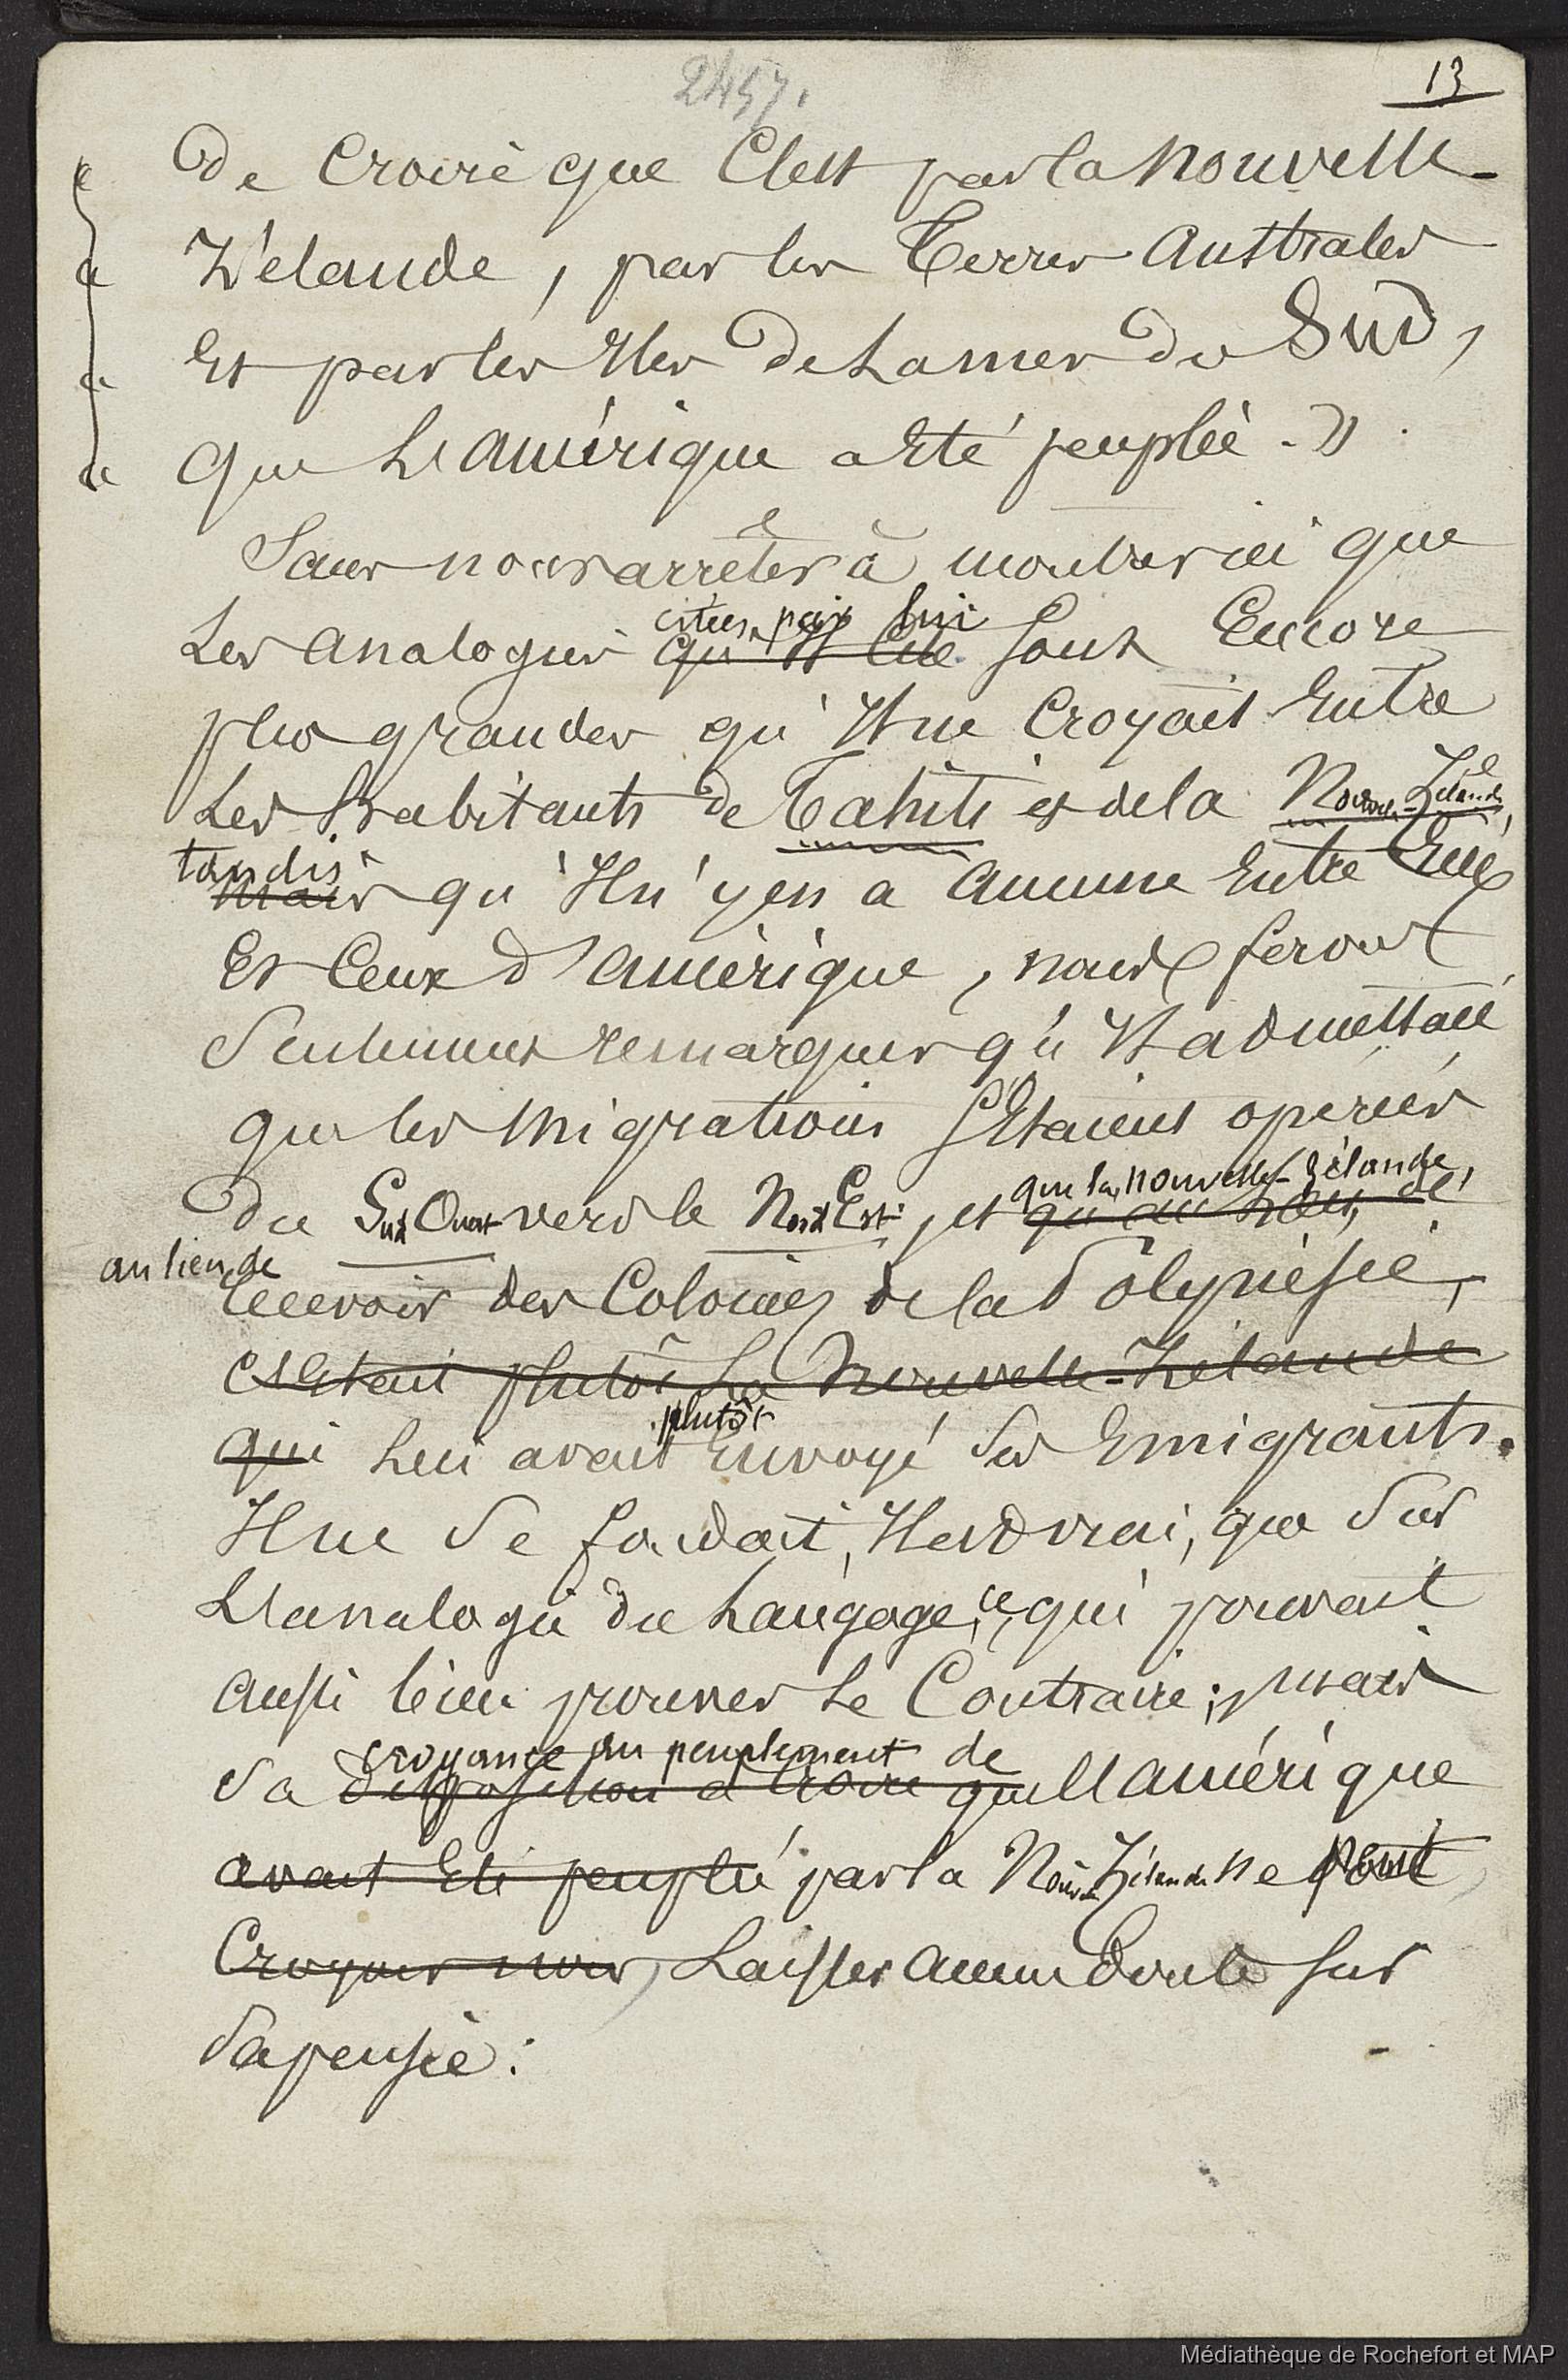 2457.
13
de croire que c'est par la Nouvelle-
Zélande, par les terres australes
et par les îles de la mer du Sud,
que l'Amérique a été peuplée. »
Sans nous arrêter à montrer ici que
citées par lui
les analogies qu'il cite sont encore
plus grandes qu'il ne croyait entre
les habitants de Tahiti et de la Nouvelle-Zélande,
tandis
mais qu'il n'y en a aucune entre eux
et ceux d'Amérique, nous ferons
seulement remarquer qu'il admettait
que les migrations s'étaient opérées
que la Nouvelle-Zélande,
du Sud Ouest vers le Nord Est, et qu'au lieu de
au lieu de
recevoir des colonies de la Polynésie,
c'était plutôt la Nouvelle-Zélande
plutôt
qui lui avait envoyé des émigrants.
Il ne se fondait, il est vrai, que sur
l'analogie du langage, ce qui pouvait
aussi bien prouver le contraire; mais
croyance au peuplement de
sa disposition à croire que l'Amérique
avait été peuplée par la Nouv. Zélande ne peut
croyons nous, laisser aucun doute sur
sa pensée:
Médiathèque de Rochefort et MAP